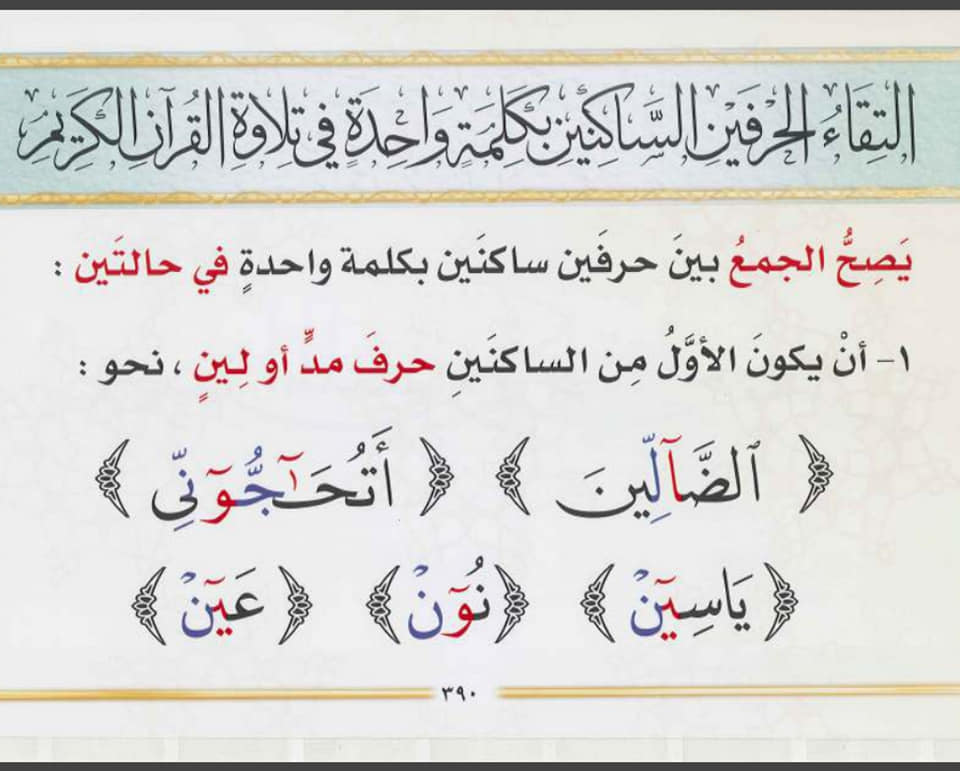 التِقَاءُ الحَرْفَيْنِ السَّاكِنَيْنِ بِكَلِمَةٍ وَاحِدَةٍ فِي تِلَاوَةِ القُرْآنِ الكَرِيمِ
يَصِحُّ الجمعُ بينَ حرفَين ساكنَين بكلمة واحدةٍ في حالتَين :
١- أنْ يكونَ الأوَّلُ مِن الساكنَينِ حرفَ مدٍّ أو لِينٍ ، نحو :
﴿ ٱلضَّآلِّينَ ﴾ ﴿ أَتُحَـٰٓجُّوٓنِّى ﴾
﴿ يَاسِيٓنْ ﴾ ﴿ نُوٓنْ ﴾ ﴿ عَيٓنْ ﴾
٣٩٠